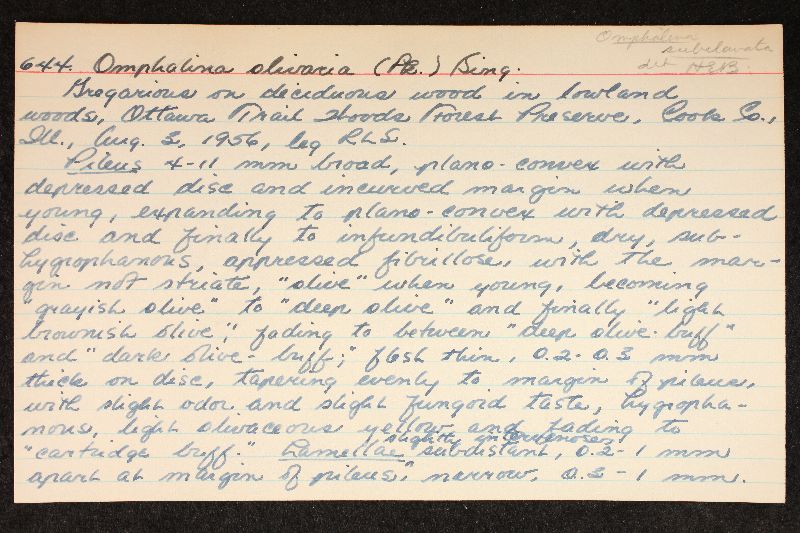 Omphalina
subclavata
det HEB.
644. Omphalina olivaria (Pk.) Sing.
Gregarious on deciduous wood in lowland
woods, Ottawa Trail Woods Forest Preserve, Cook Co.,
Ill., Aug. 3, 1956, leg RLS.
Pileus 4-11 mm broad, plano-convex with
depressed disc and incurved margin when
young, expanding to plano-convex with depressed
disc and finally to infundibuliform, dry, sub-
hygrophanous, appressed fibrillose, with the mar-
gin not striate, "olive" when young, becoming
"grayish olive" to "deep olive" and finally "light
brownish olive", fading to between "deep olive-buff"
and "dark olive-buff;" flesh thin, 0.2-0.3 mm
thick on disc, tapering evenly to margin of pileus,
with slight odor and slight fungoid taste, hygropha-
nous, light olivaceous yellow and fading to
"cartridge buff." Lamellae slightly intervenose, subdistant, 0.2-1 mm
apart at margin of pileus, narrow, 0.3-1 mm.